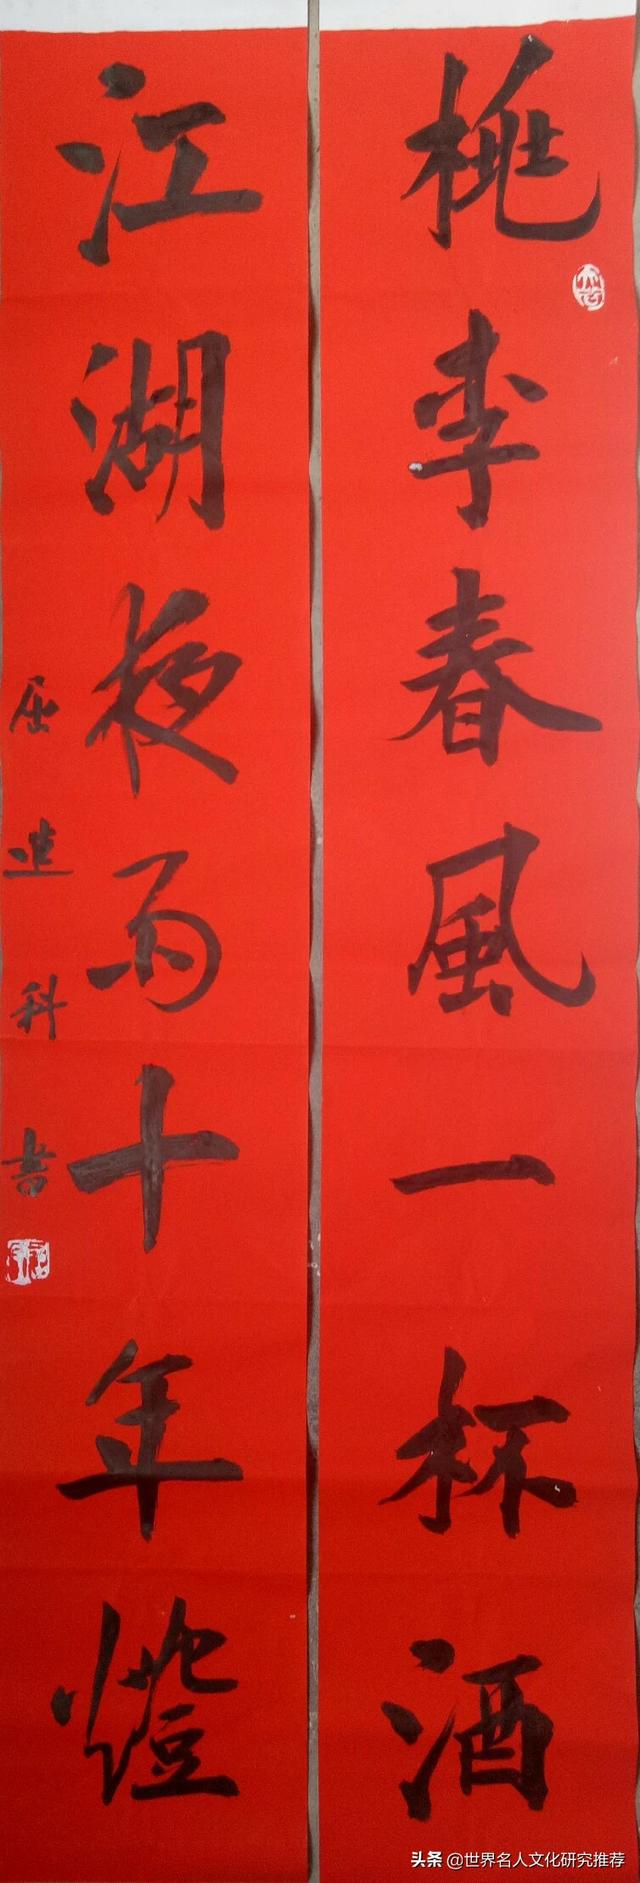 桃李春風一杯酒
江湖夜雨十年燈
屈建科書
头条 @世界名人文化研究推荐